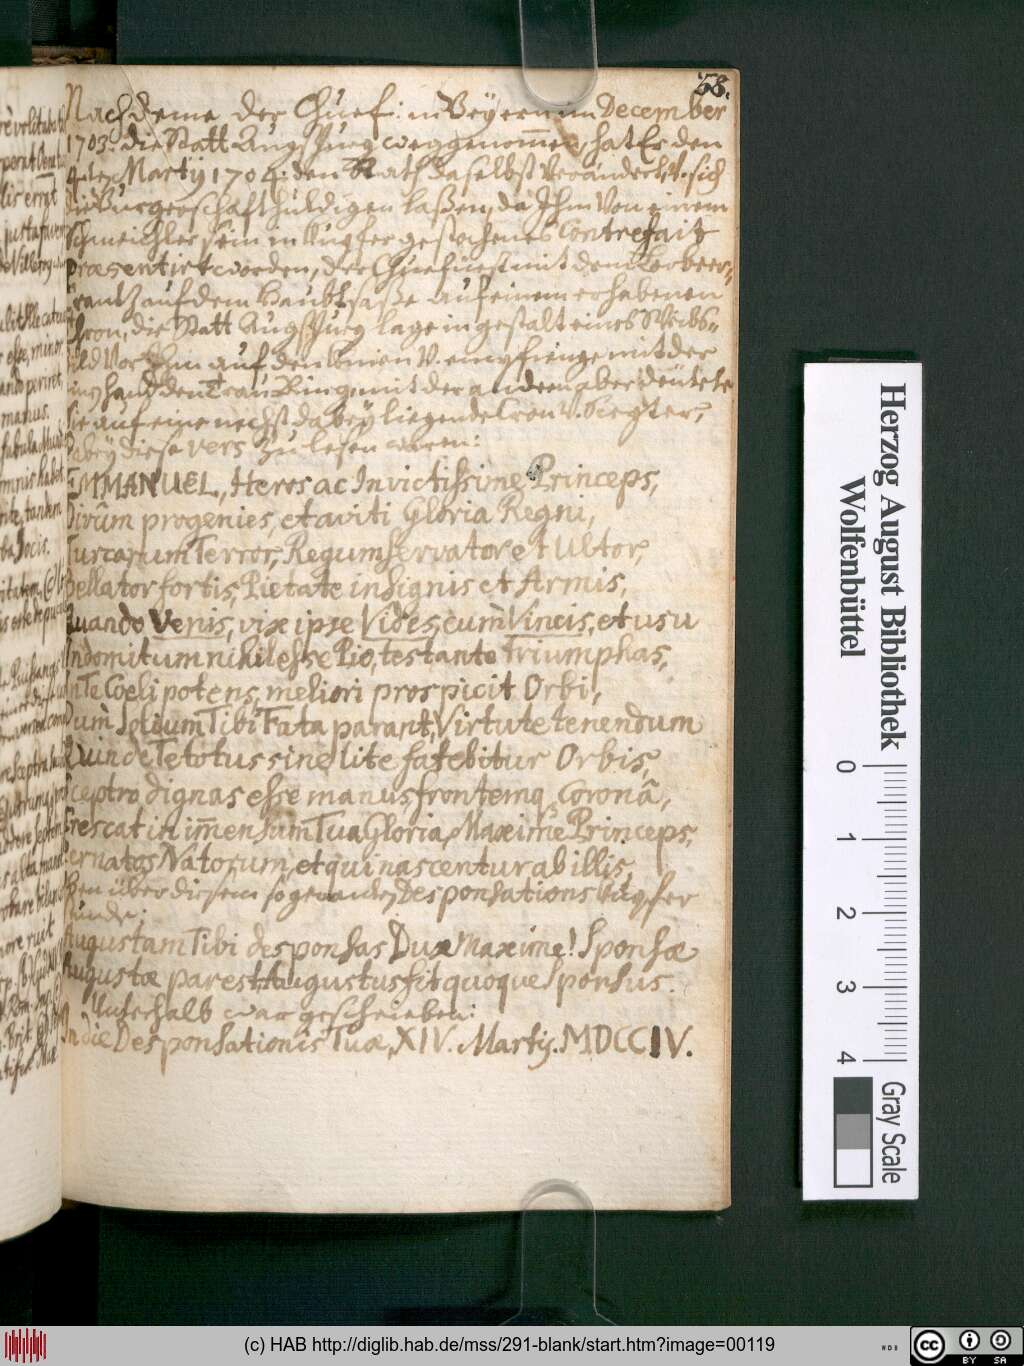 58.
Nachdeme der Churf: in Beÿern im December
1703. die Statt Augspurg weggenommen, hat Er den
4ten Martÿ 1704. den Rath daselbst verändert v. sich
die Burgerschafft huldigen laßen, da Ihm von einem
Schmeichler sein in Kupfer gestochenes Contrefait
præsentirt worden, der Churfürst mit dem Lorbeer-
krantz auf dem Haubt saße auf einem erhabenen
Thron, die Statt Augspurg lage in gestalt eines Weibs-
bild vor Ihm auf den Knien v. empfienge mit der
hand den Trau Ring mit der andern aber deütete
Sie auf eine nechst dabeÿ liegende Cron v. Scepter,
dabeÿ diese vers zu lesen waren:
EMMANUEL, Heros ac Invictissime Princeps,
Divûm progenies, et aviti Gloria Regni,
Turcarum Terror, Regum servator et Ultor,
Bellator fortis, Pietate insignis et Armis,
Quando Venis, vix ipse Vides, cum Vincis, et usu
Indomitum nihil esse Pio, testante Triumphas,
In Te Coeli potens, meliori prospicit Orbi,
Dum Solium Tibi Fata parant, Virtute tenendum
Quin de Te totus sine lite fatebitur Orbis,
Sceptro dignas esse manus frontemq Coronâ,
Crescat in imensum Tua Gloria, Maxime Princeps,
Per natos Natorum, et qui nascentur ab illis,
Oben über diesem so genanden Desponsations Kupfer
stunde:
Augustam Tibi desponsas Dux Maxime! Sponsæ
Augustæ par est Augustus sit quoque Sponsus.
Unterhalb war geschrieben:
In die Desponsationis Tuæ, XIV. Martij. MDCCIV.
Herzog August Bibliothek
Wolfenbüttel
0 1 2 3 4
Gray Scale
(c) HAB http://diglib.hab.de/mss/291-blank/start.htm?image=00119
WDB
cc BY SA